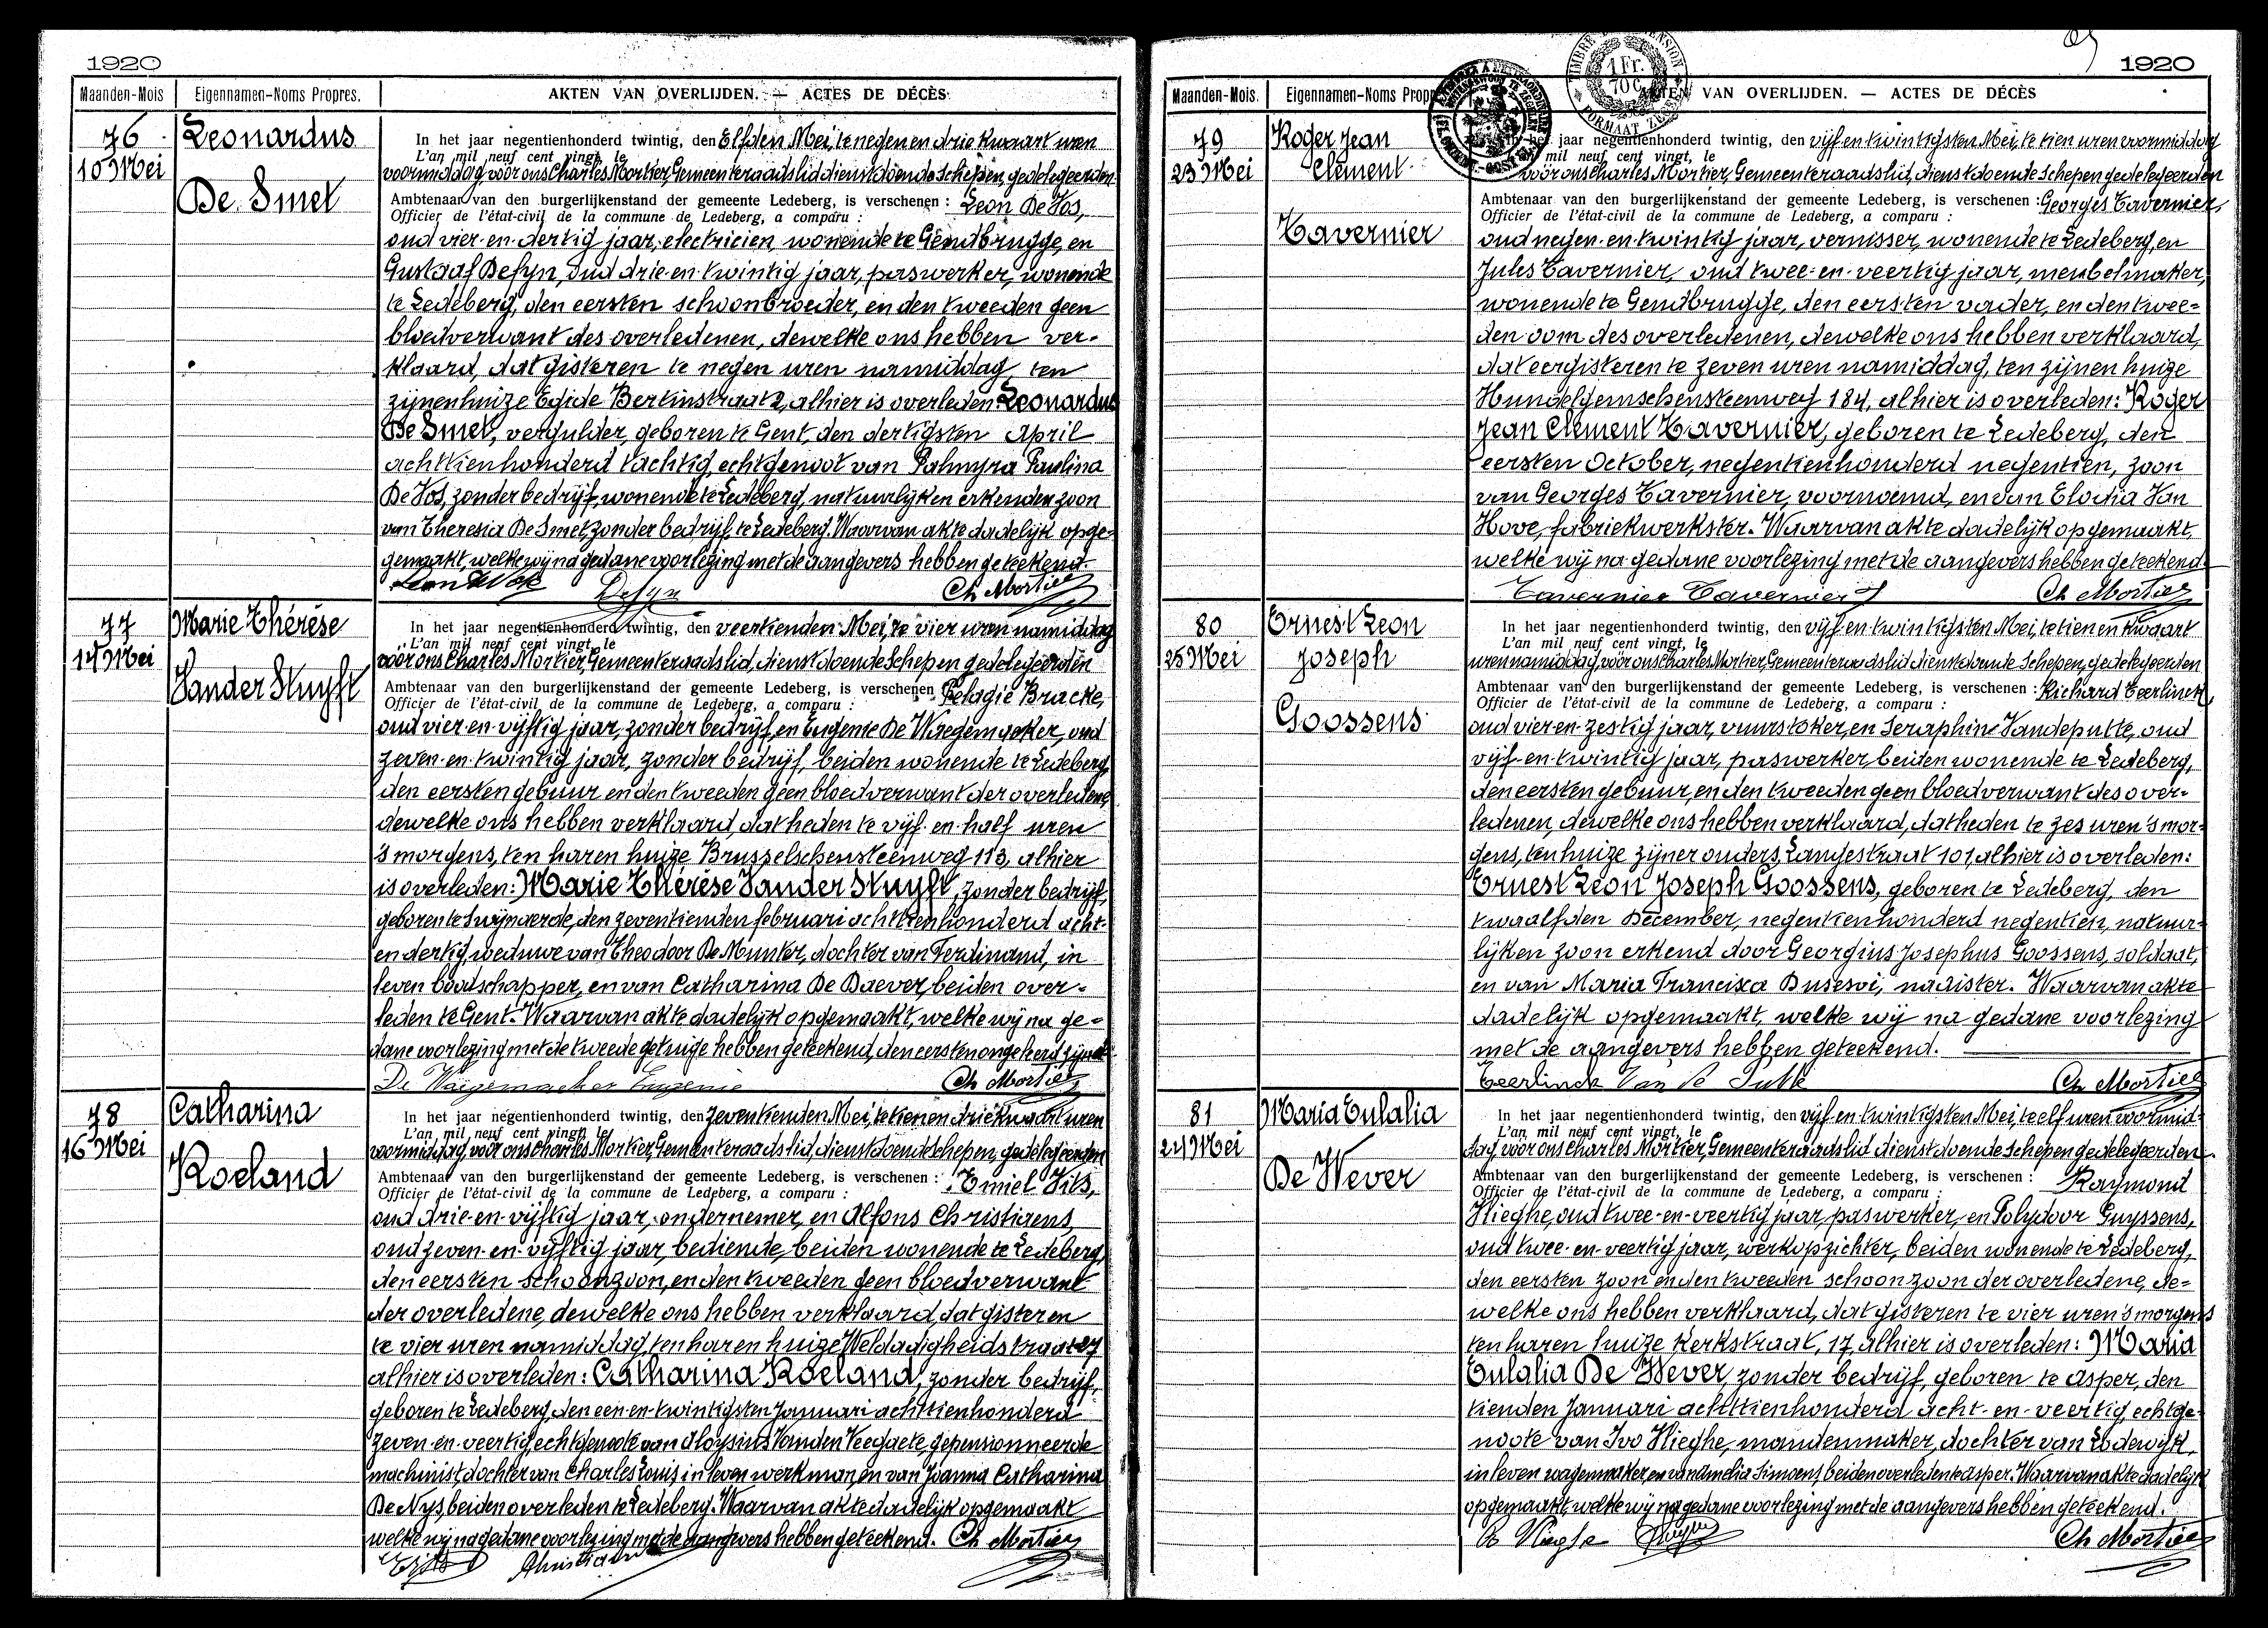 1920
Maanden-Mois
Eigennamen-Noms Propres.
AKTEN VAN OVERLIJDEN. — ACTES DE DÉCÈS
76
10 Mei
Leonardus
De Smet
In het jaar negentienhonderd twintig, den Elfden Mei, te negen en drie kwaart uren
L'an mil neuf cent vingt, le
voormiddag, voor ons Charles Mortier, Gemeenteraadslid, dienstdoende Schepen, gedelegeerden
Ambtenaar van den burgerlijkenstand der gemeente Ledeberg, is verschenen : Leon De Vos,
Officier de l'état-civil de la commune de Ledeberg, a comparu :
oud vier-en-dertig jaar, electricien, wonende te Gendbrugge, en
Gustaaf Defyn, oud drie-en-twintig jaar, paswerker, wonende
te Ledeberg, den eersten schoonbroeder, en den tweeden geen
bloedverwant des overledenen, dewelke ons hebben ver-
klaard, dat gisteren te negen uren namiddag, ten
zijnen huize Egide Bertinstraat 2, alhier is overleden: Leonardus
De Smet, vergulder, geboren te Gent, den dertigsten April
achttienhonderd tachtig, echtgenoot van Palmyra Paulina
De Vos, zonder bedrijf, wonende te Ledeberg, natuurlijken erkenden zoon
van Theresia De Smet, zonder bedrijf, te Ledeberg. Waarvan akte dadelijk opge-
gemaakt, welke wij na gedane voorlezing met de aangevers hebben geteekend.
Leon De Vos Defyn Ch Mortier
77
14 Mei
Marie Thérèse
Vander Stuyft
In het jaar negentienhonderd twintig, den veertienden Mei, te vier uren namiddag
L'an mil neuf cent vingt, le
voor ons Charles Mortier, Gemeenteraadslid, dienstdoende Schepen gedelegeerden
Ambtenaar van den burgerlijkenstand der gemeente Ledeberg, is verschenen : Pelagie Bracke,
Officier de l'état-civil de la commune de Ledeberg, a comparu :
oud vier-en-vijftig jaar, zonder bedrijf, en Eugenie De Waegemaeker, oud
zeven-en-twintig jaar, zonder bedrijf, beiden wonende te Ledeberg,
den eersten gebuur en den tweeden geen bloedverwant der overledene,
dewelke ons hebben verklaard, dat heden te vijf-en-half uren
's morgens, ten haren huize Brusselschensteenweg 113, alhier
is overleden: Marie Thérèse Vander Stuyft, zonder bedrijf,
geboren te Swijnaerde, den zeventienden februari achttienhonderd acht-
en dertig, weduwe van Theodoor De Munter, dochter van Ferdinand, in
leven boodschapper, en van Catharina De Daever, beiden over-
leden te Gent. Waarvan akte dadelijk opgemaakt, welke wij na ge-
dane voorlezing met de tweede getuige hebben geteekend, den eersten ongeleerd zijnde.
De Waegemaeker Eugenie Ch Mortier
78
16 Mei
Catharina
Roeland
In het jaar negentienhonderd twintig, den zeventienden Mei, te tien en drie kwaart uren
L'an mil neuf cent vingt, le
voormiddag, voor ons Charles Mortier, Gemeenteraadslid, dienstdoende Schepen, gedelegeerden
Ambtenaar van den burgerlijkenstand der gemeente Ledeberg, is verschenen : Emiel Vits,
Officier de l'état-civil de la commune de Ledeberg, a comparu :
oud drie-en-vijftig jaar, ondernemer, en Alfons Christiaens,
oud zeven-en-vijftig jaar, bediende, beiden wonende te Ledeberg,
den eersten schoonzoon, en den tweeden geen bloedverwant
der overledene, dewelke ons hebben verklaard, dat gisteren
te vier uren namiddag, ten haren huize Weldadigheidstraat 27
alhier is overleden: Catharina Roeland, zonder bedrijf,
geboren te Ledeberg, den een-en-twintigsten Januari achttienhonderd
zeven-en-veertig, echtgenoote van Aloysius Vanden Veegaete, gepensionneerde
machinist, dochter van Charles Louis, in leven werkman, en van Joanna Catharina
De Nys, beiden overleden te Ledeberg. Waarvan akte dadelijk opgemaakt
welke wij na gedane voorlezing met de aangevers hebben geteekend. Ch Mortier
E Vits Christiaens
1920
TIMBRE DE DIMENSION
1 Fr.
70 c.
FORMAAT ZEGEL
Maanden-Mois.
Eigennamen-Noms Propres
AKTEN VAN OVERLIJDEN. — ACTES DE DÉCÈS
79
23 Mei
Roger Jean
Clement
Tavernier
jaar negentienhonderd twintig, den vijf-en-twintigsten Mei, te tien uren voormiddag
mil neuf cent vingt, le
voor ons Charles Mortier, Gemeenteraadslid, dienstdoende Schepen gedelegeerden
Ambtenaar van den burgerlijkenstand der gemeente Ledeberg, is verschenen : Georges Tavernier,
Officier de l'état-civil de la commune de Ledeberg, a comparu :
oud negen-en-twintig jaar, vernisser, wonende te Ledeberg, en
Jules Tavernier, oud twee-en-veertig jaar, meubelmaker,
wonende te Gendbrugge, den eersten vader, en den twee-
den oom des overledenen, dewelke ons hebben verklaard,
dat eergisteren te zeven uren namiddag, ten zijnen huize
Hundelgemschensteenweg 184, alhier is overleden: Roger
Jean Clement Tavernier, geboren te Ledeberg, den
eersten October, negentienhonderd negentien, zoon
van Georges Tavernier, voornoemd, en van Elodia Van
Hove, fabriekwerkster. Waarvan akte dadelijk opgemaakt,
welke wij na gedane voorlezing met de aangevers hebben geteekend.
Tavernier Tavernier J Ch Mortier
80
25 Mei
Ernest Leon
Joseph
Goossens
In het jaar negentienhonderd twintig, den vijf-en-twintigsten Mei, te tien en kwaart
L'an mil neuf cent vingt, le
uren namiddag, voor ons Charles Mortier, Gemeenteraadslid dienstdoende Schepen, gedelegeerden
Ambtenaar van den burgerlijkenstand der gemeente Ledeberg, is verschenen : Richard Teerlinck,
Officier de l'état-civil de la commune de Ledeberg, a comparu :
oud vier-en-zestig jaar, vuurstoker, en Seraphin Vandeputte, oud
vijf-en-twintig jaar, paswerker, beiden wonende te Ledeberg,
den eersten gebuur, en den tweeden geen bloedverwant des over-
ledenen, dewelke ons hebben verklaard, dat heden te zes uren 's mor-
gens, ten huize zijner ouders, Langestraat 101, alhier is overleden:
Ernest Leon Joseph Goossens, geboren te Ledeberg, den
twaalfden December, negentienhonderd negentien, natuur-
lijken zoon erkend door Georgius Josephus Goossens, soldaat,
en van Maria Francisca Dusesoi, naaister. Waarvan akte
dadelijk opgemaakt, welke wij na gedane voorlezing
met de aangevers hebben geteekend.
Teerlinck Van de Putte Ch Mortier
81
24 Mei
Maria Eulalia
De Wever
In het jaar negentienhonderd twintig, den vijf-en-twintigsten Mei, te elf uren voormid-
L'an mil neuf cent vingt, le
dag, voor ons Charles Mortier, Gemeenteraadslid dienstdoende Schepen gedelegeerden
Ambtenaar van den burgerlijkenstand der gemeente Ledeberg, is verschenen : Raymond
Officier de l'état-civil de la commune de Ledeberg, a comparu :
Vlieghe, oud twee-en-veertig jaar, paswerker, en Polydoor Guyssens,
oud twee-en-veertig jaar, werkopzichter, beiden wonende te Ledeberg,
den eersten zoon en den tweeden schoonzoon der overledene, de-
welke ons hebben verklaard, dat gisteren te vier uren 's morgens
ten haren huize Kerkstraat, 17, alhier is overleden: Maria
Eulalia De Wever, zonder bedrijf, geboren te Asper, den
tienden Januari achttienhonderd acht-en-veertig, echtge-
noote van Ivo Vlieghe, mandenmaker, dochter van Lodewijk,
in leven wagenmaker, en van Amelia Simoens, beiden overleden te Asper. Waarvan akte dadelijk
opgemaakt, welke wij na gedane voorlezing met de aangevers hebben geteekend.
R Vlieghe Ch Mortier